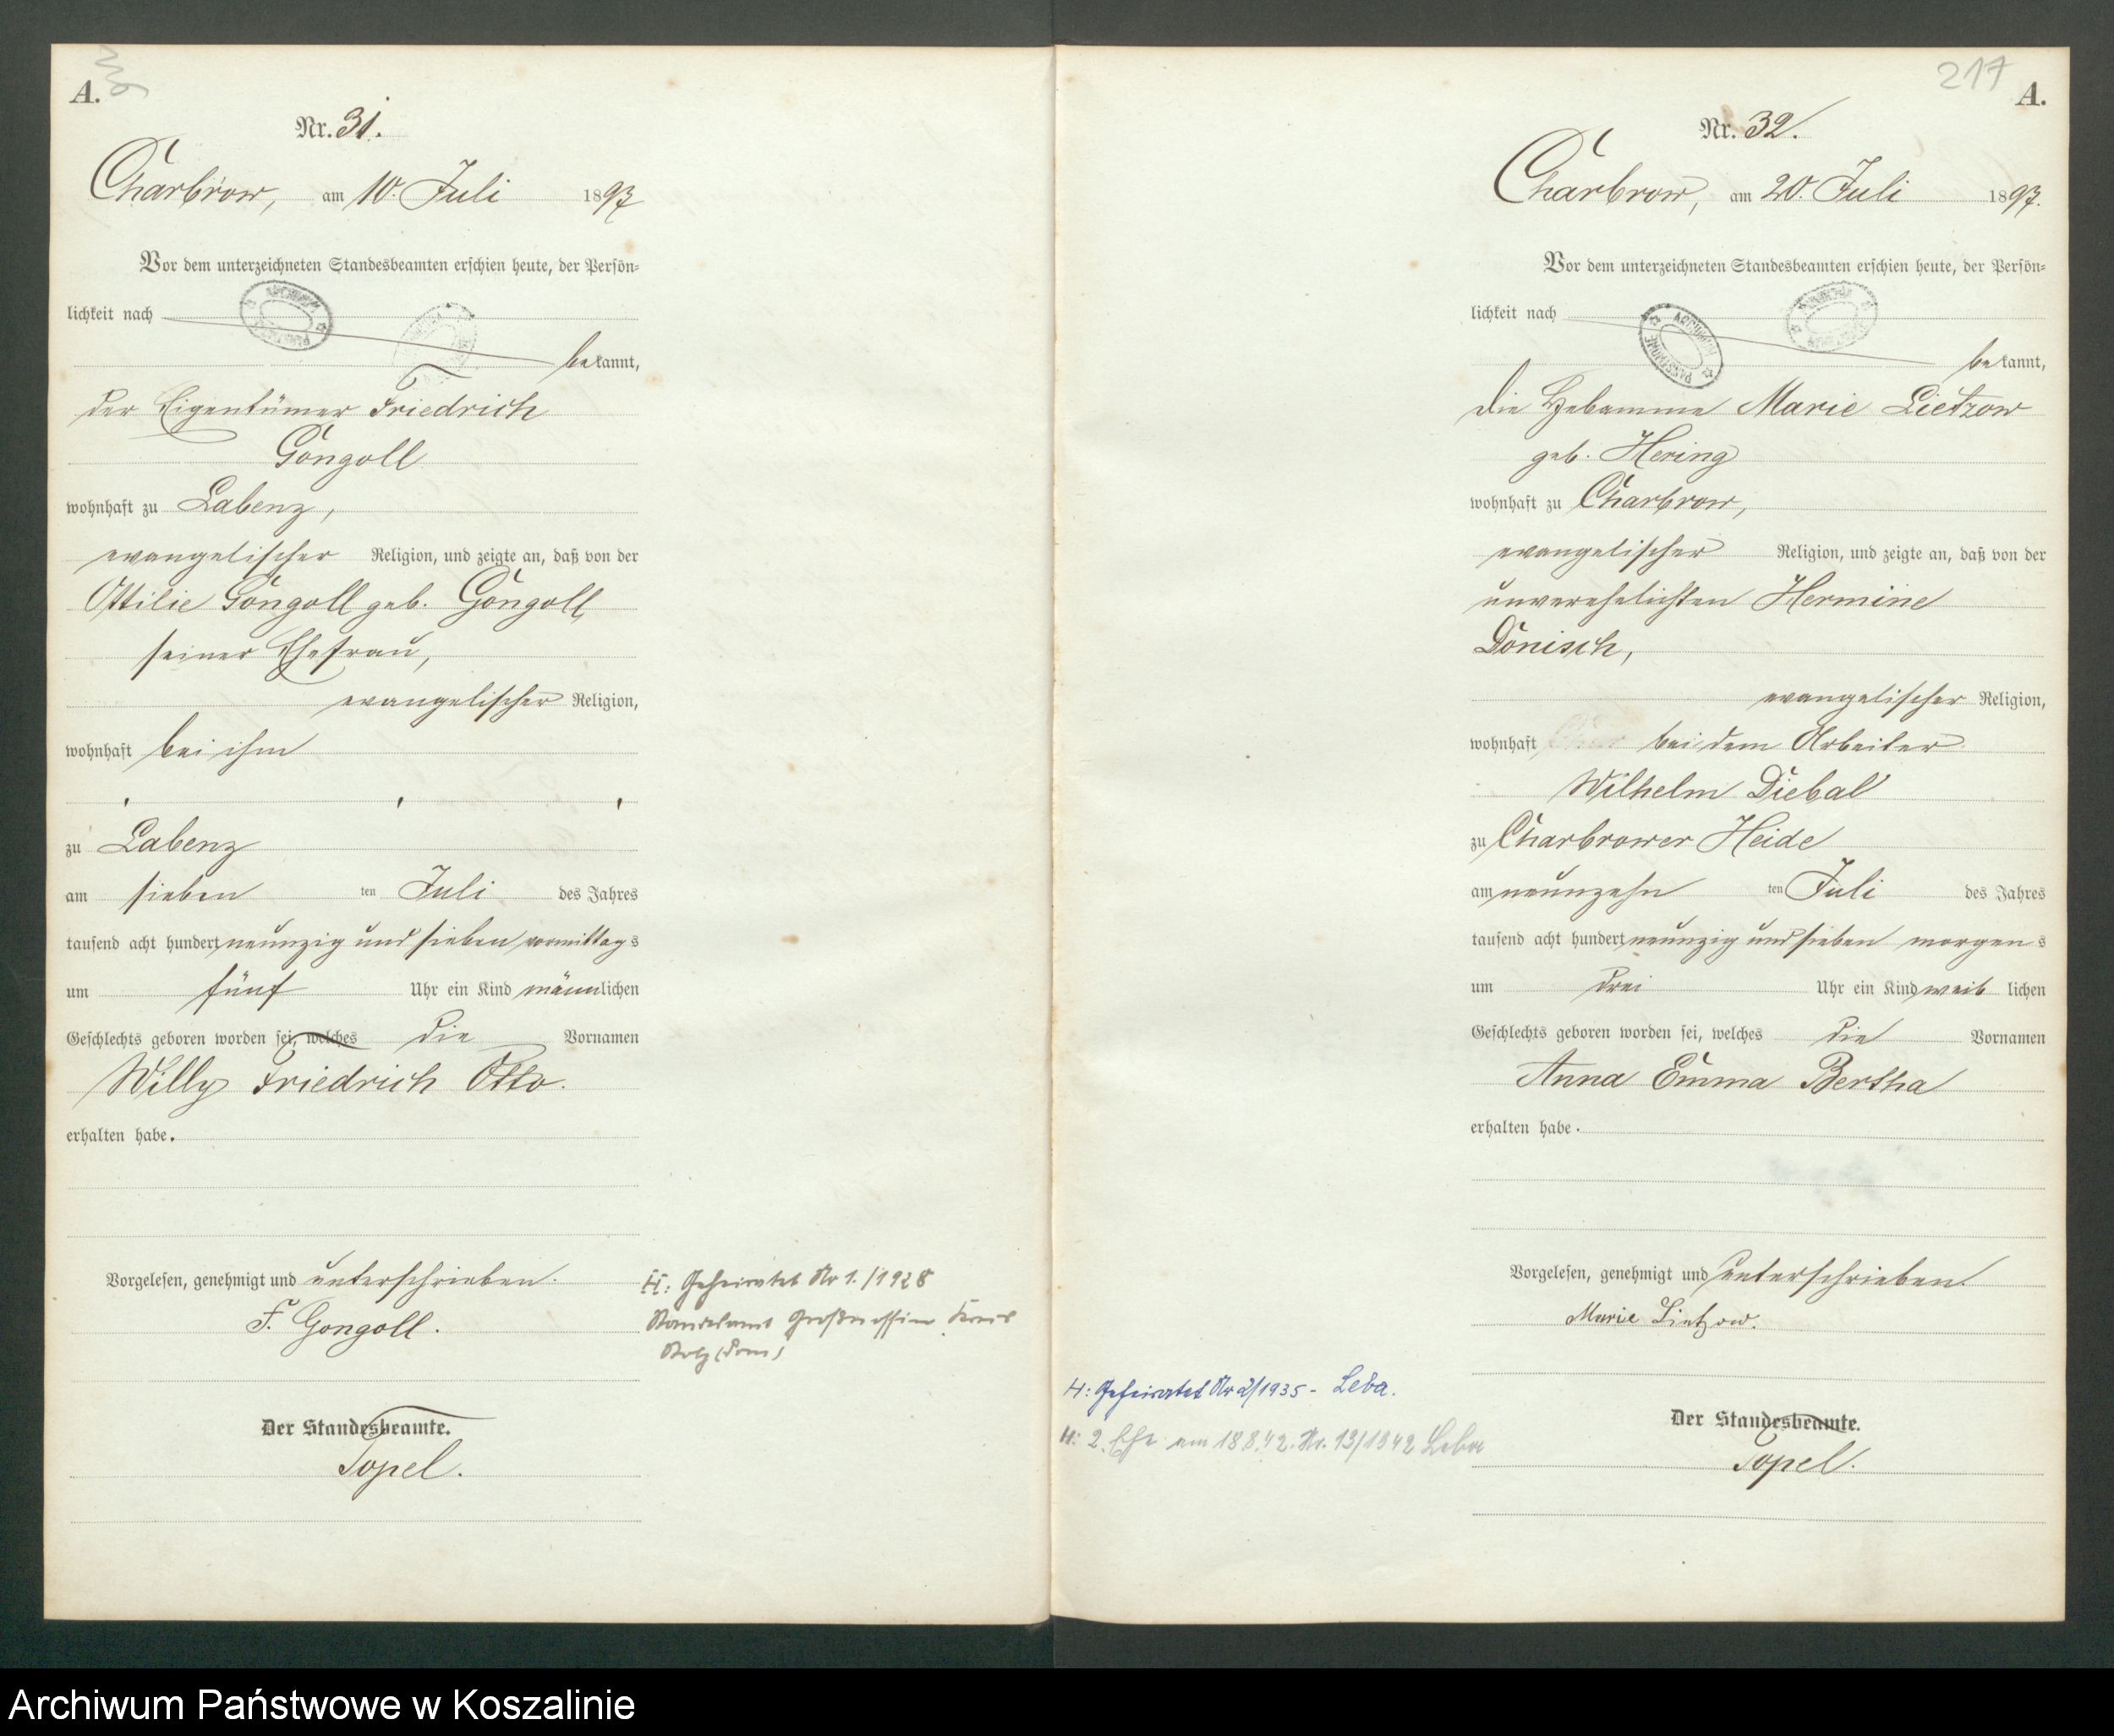 A.
Nr. 31.
Charbrow, am 10. Juli 1897
Vor dem unterzeichneten Standesbeamten erschien heute, der Persön-
lichkeit nach
bekannt,
der Eigentümer Friedrich
Gongoll
wohnhaft zu Labenz,
evangelischer Religion, und zeigte an, daß von der
Ottilie Gongoll geb. Gongoll,
seiner Ehefrau,
evangelischer Religion,
wohnhaft bei ihm
zu Labenz
am sieben ten Juli des Jahres
tausend acht hundert neunzig und sieben vormittags
um fünf Uhr ein Kind männlichen
Geschlechts geboren worden sei, welches die Vornamen
Willy Friedrich Otto.
erhalten habe.
Vorgelesen, genehmigt und unterschrieben.
F. Gongoll.
H: Geheiratet Nr 1./1928
Standesamt Großmassow Kreis
Stolp (Pom)
Der Standesbeamte.
Topel.
217
A.
Nr. 32.
Charbrow, am 20. Juli 1897.
Vor dem unterzeichneten Standesbeamten erschien heute, der Persön-
lichkeit nach
bekannt,
die Hebamme Marie Lietzow
geb. Hering
wohnhaft zu Charbrow,
evangelischer Religion, und zeigte an, daß von der
unverehelichten Hermine
Dönisch,
evangelischer Religion,
wohnhaft bei dem Arbeiter
Wilhelm Diebal
zu Charbrower Heide
am neunzehn ten Juli des Jahres
tausend acht hundert neunzig und sieben morgens
um drei Uhr ein Kind weiblichen
Geschlechts geboren worden sei, welches die Vornamen
Anna Emma Bertha
erhalten habe.
Vorgelesen, genehmigt und unterschrieben.
Marie Lietzow.
H: Geheiratet Nr 2/1935 - Leba.
H: 2. Ehe am 18.8.42. Nr. 13/1942 Leba
Der Standesbeamte.
Topel.
Archiwum Państwowe w Koszalinie